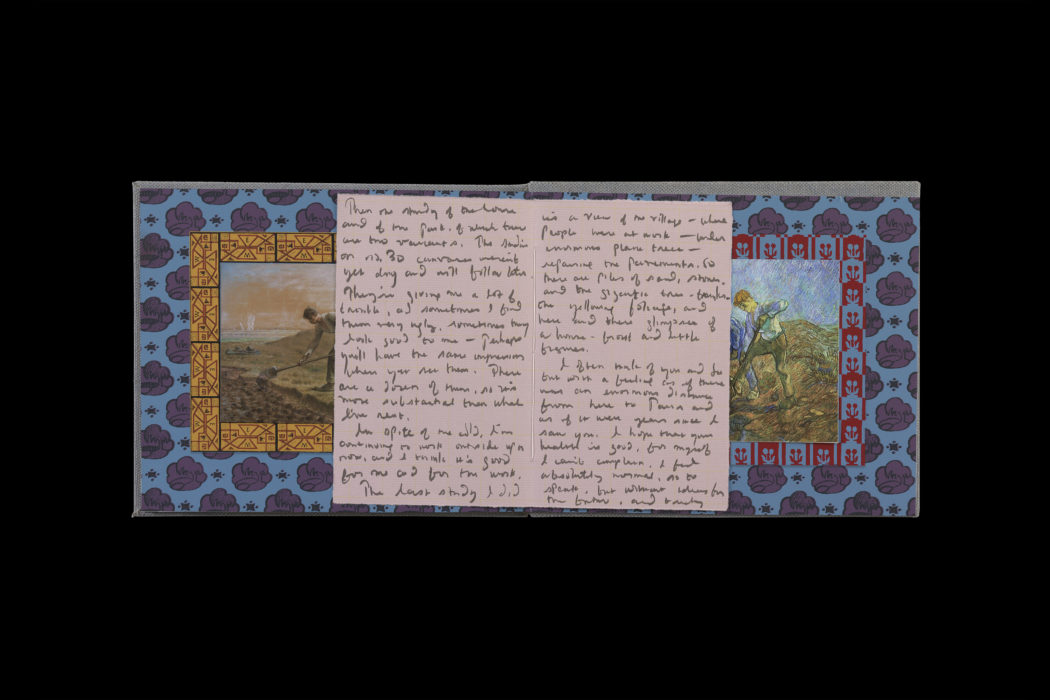 Then one study of the house
and of the park, of which there
are two variants. The studies
on no. 30 canvases weren't
yet dry and will follow later.
They're giving me a lot of
trouble, as sometimes I find
them very ugly, sometimes they
look good to me – Perhaps
you'll have the same impression
when you see them. There
are a dozen of them, so it's
more substantial than what
the rest.
In spite of the cold, I'm
continuing to work outside up to
now, and I think it's good
for me and for the work.
The last study I did
is a view of the village – where
people were at work – under
enormous plane trees –
repairing the pavements. So
there are piles of sand, stones
and the gigantic tree-trunks –
the yellowing foliage, and
here and there glimpses of
a house-front and little
figures.
I often think of you and Jo
but with a feeling as if there
was an enormous distance
from here to Paris and
as if it were years since I
saw you. I hope that your
health is good, for myself
I can't complain. I feel
absolutely normal, so to
speak, but without ideas for
the future, and truly